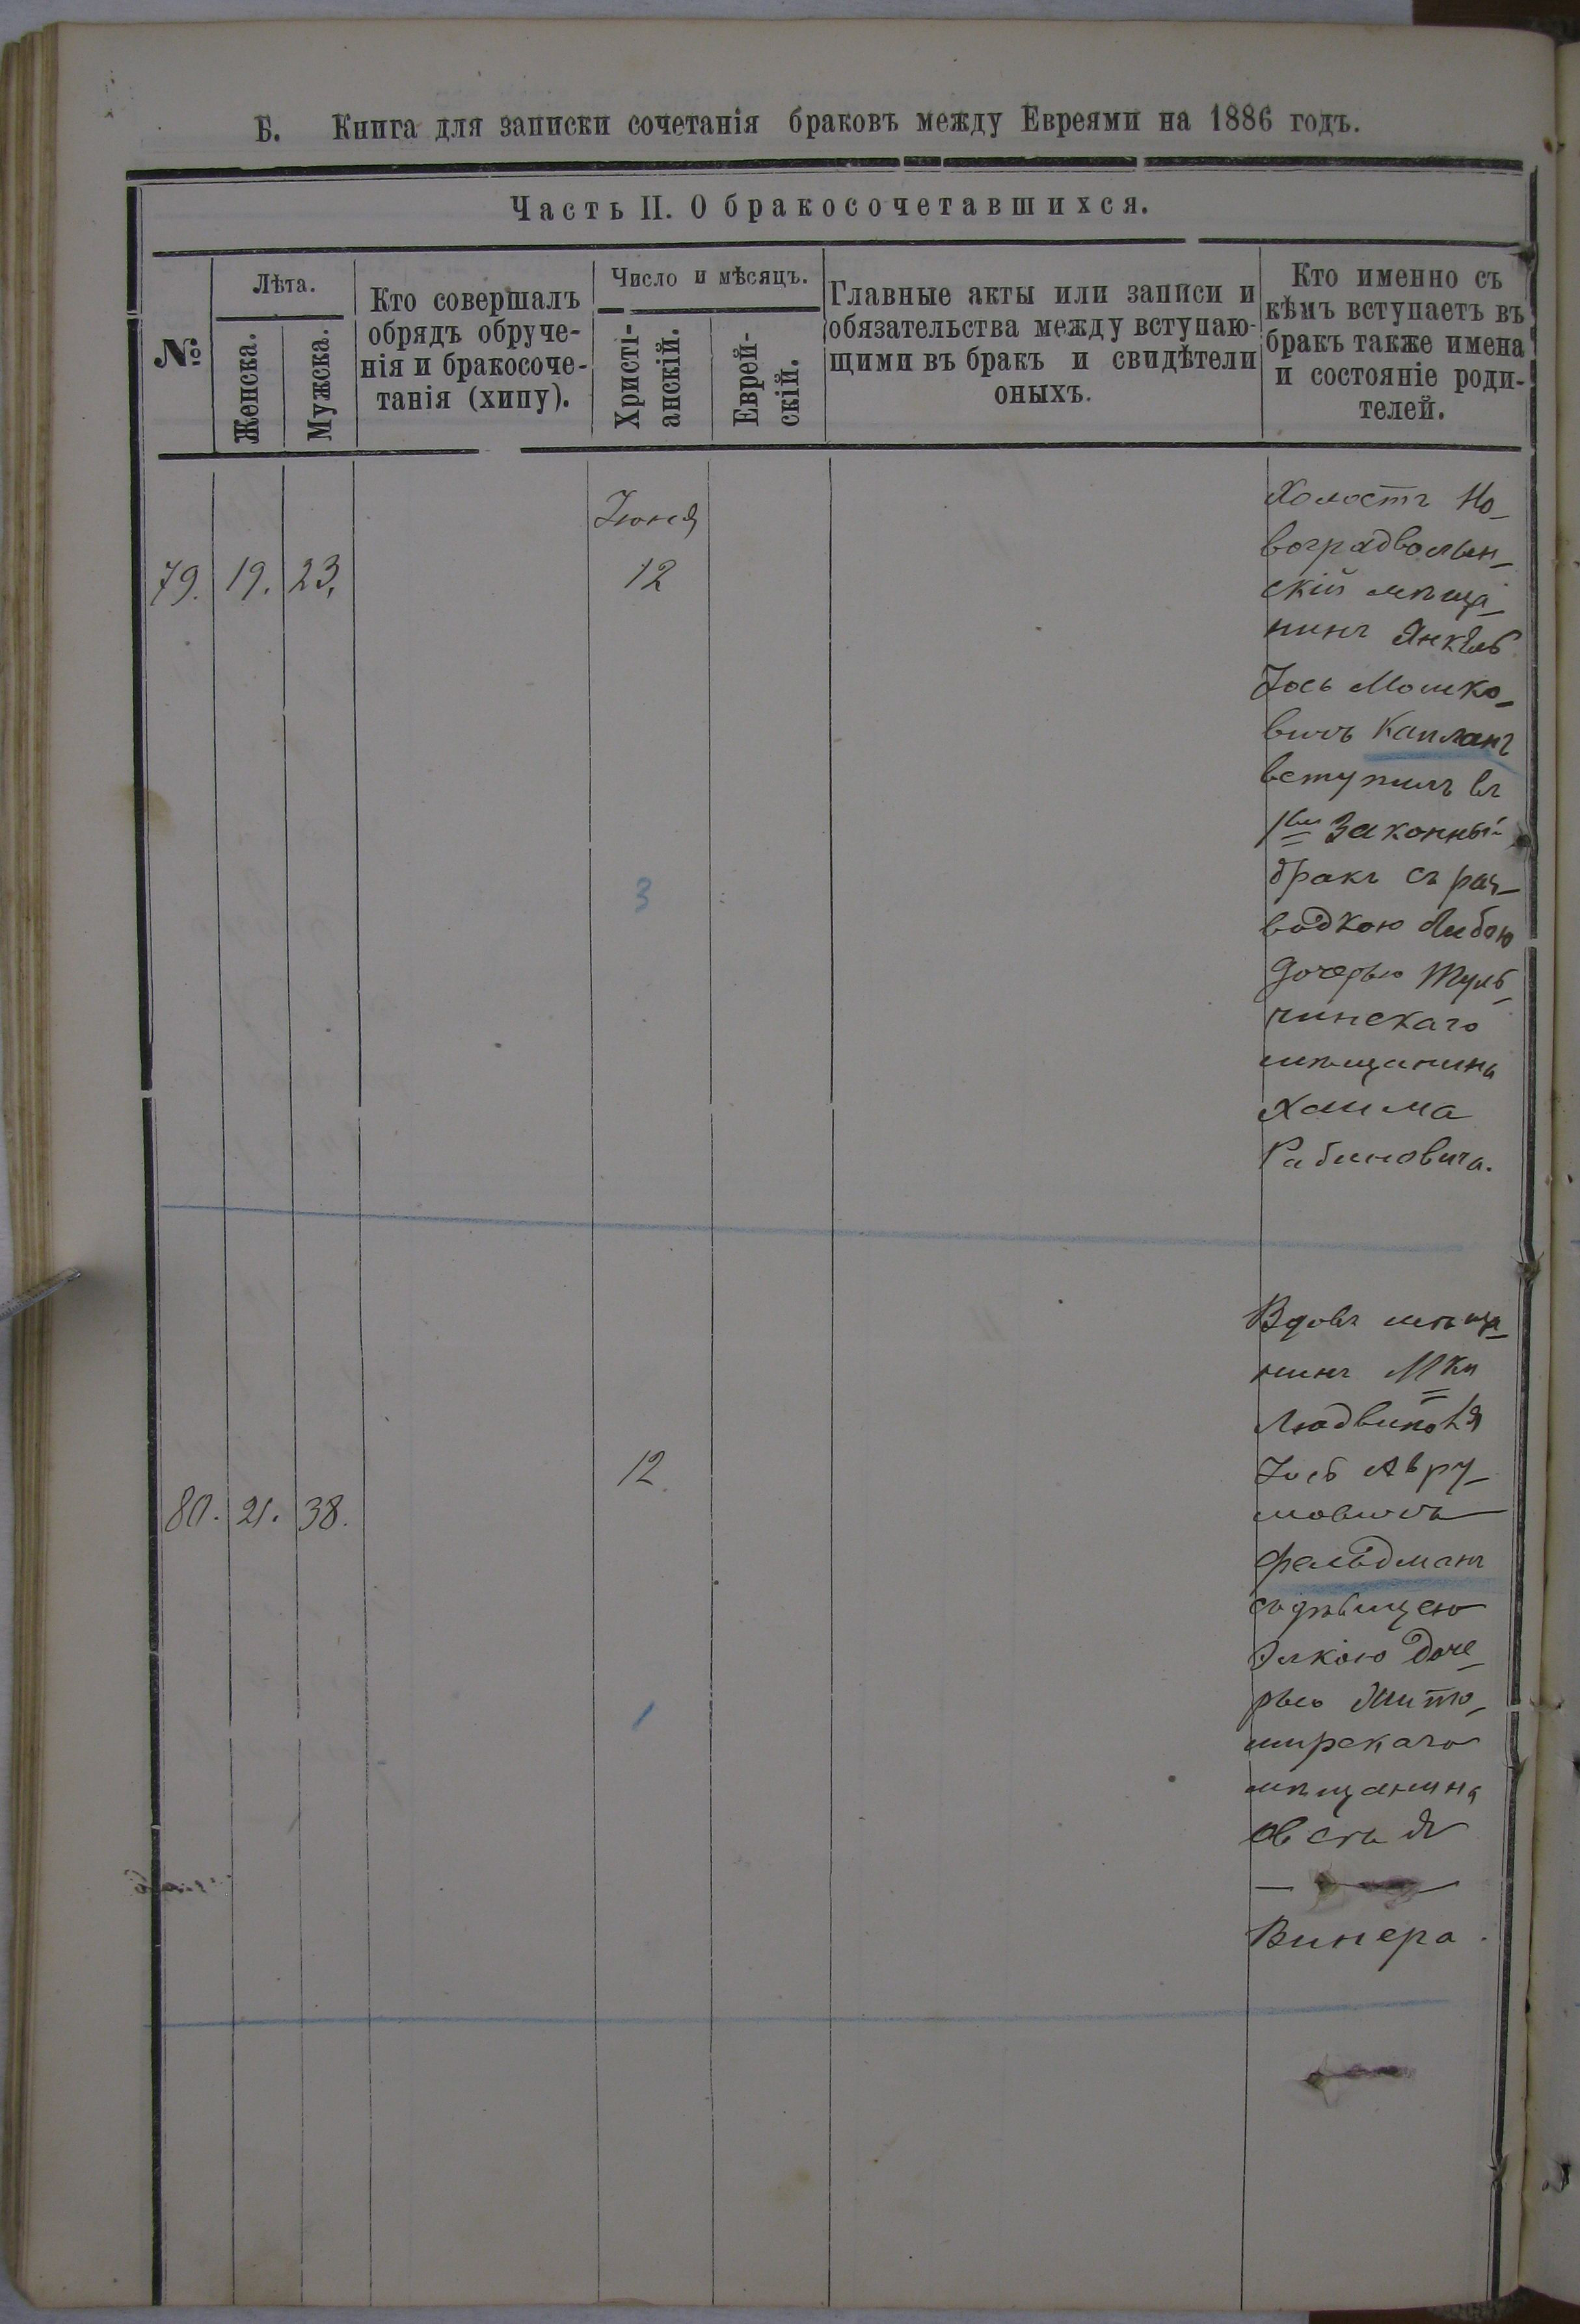 Б. Книга для записки сочетанія браковъ между Евреями на 1886 годъ.
Часть II. О бракосочетавшихся.
№
Лѣта.
Женска.
Мужска.
Кто совершалъ
обрядъ обруче-
нія и бракосоче-
танія (хипу).
Число и мѣсяцъ.
Христі-
анскій.
Еврей-
скій.
Главные акты или записи и
обязательства между вступаю-
щими въ бракъ и свидѣтели
оныхъ.
Кто именно съ
кѣмъ вступаетъ въ
бракъ также имена
и состояніе роди-
телей.
79. 19. 23.
Іюня
12
3
Холостъ Но-
воградволын-
скій мѣща-
нинъ Янкель
Іось Мошко-
вичъ Капланъ
вступилъ въ
1вый законный
бракъ съ раз-
водкою Либою
дочерью Туль-
чинскаго
мѣщанина
Хаима
Рабиновича.
80. 21. 38.
12
1
Вдовъ мѣща-
нинъ Мки
Людвиполя
Іось Авру-
мовичъ
Фельдманъ
съ дѣвицею
Элкою доче-
рью Жито-
мирскаго
мѣщанина
Овсѣя
Винера.